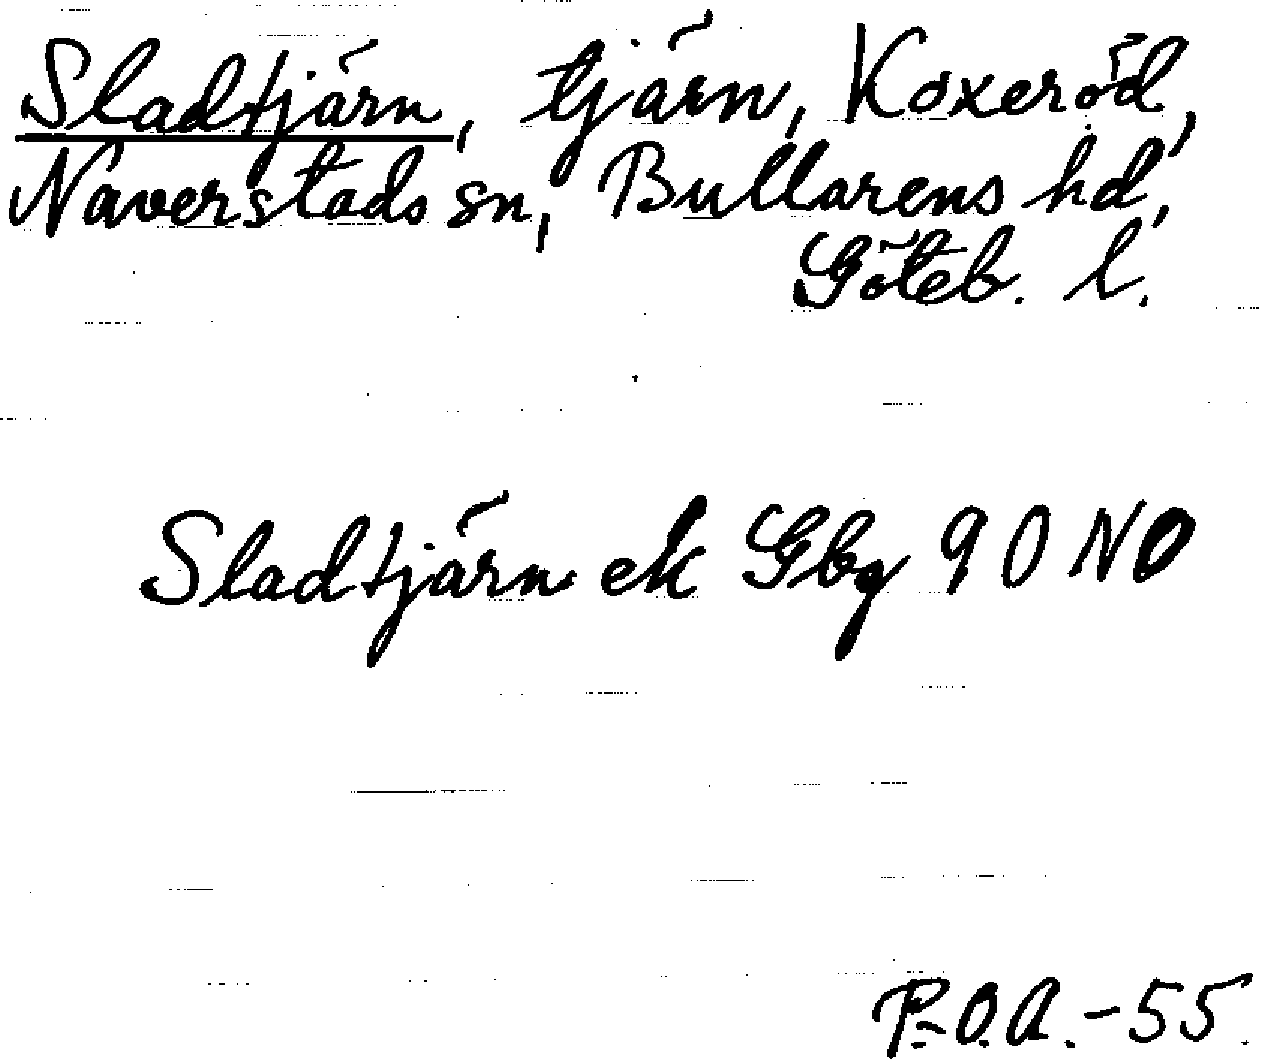 Sladtjärn, tjärn, Koxeröd,
Naverstads sn, Bullarens hd,
Göteb. l.
Sladtjärn ek Gbg 90 NO
P.O.A. -55.